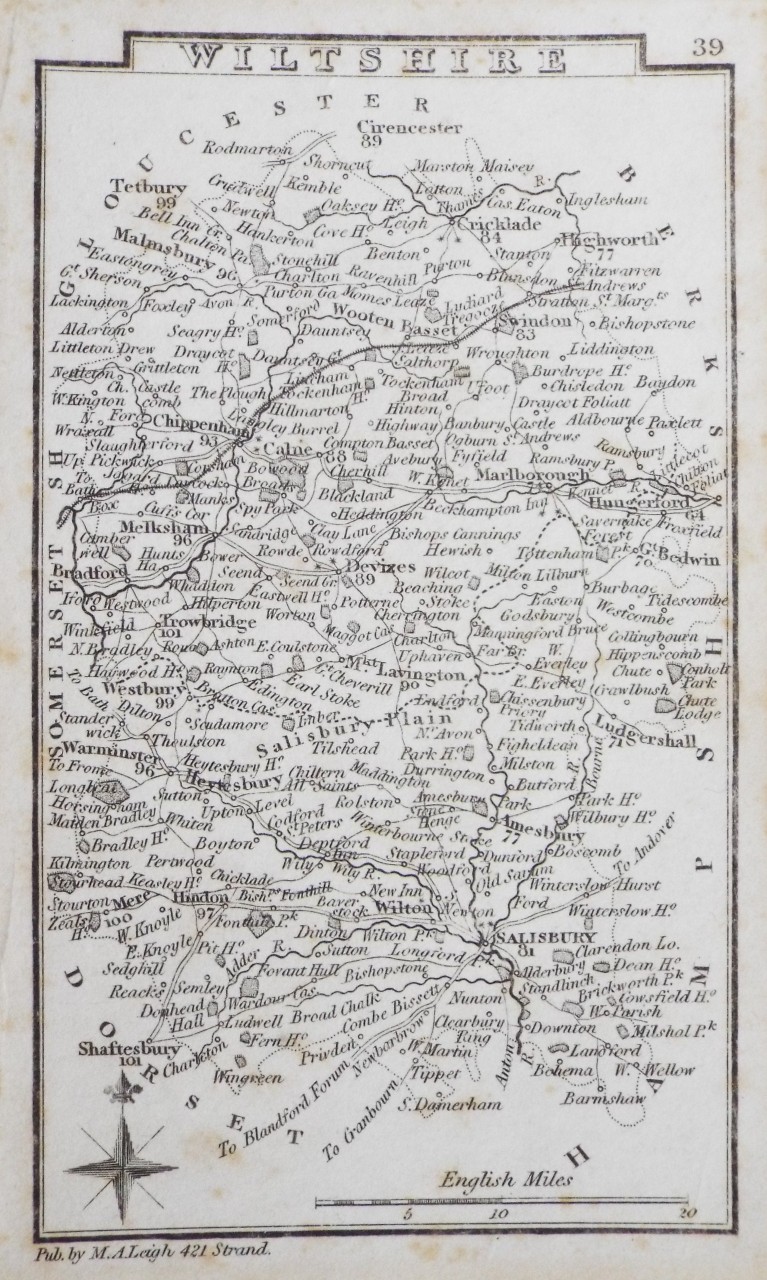 39
WILTSHIRE
GLOUCESTER
Cirencester
89
Rodmarton
Shorncut
Marston Maisey
BERKSHIRE
Tetbury
99
Crudwell
Kemble
Latton
Thames R.
Cas. Eaton
Inglesham
Newton
Oaksey Ho.
Bell Inn
Leigh
Cricklade
84
Chalton Pa.
Hankerton
Cove Ho.
Highworth
77
Malmsbury 96
Benton
Stanton
Eastongrey
Stonehill
Gt. Sherson
Charlton
Ravenhill
Purton
Blunsdon
Fitzwarren
Andrews
Lackington
Foxley
Avon R.
Purton Ga
Momes Leaze
Lydiard
Tregooze
Stratton St. Margts
Somerford
Wooten Basset
Alderton
Seagry Ho.
Dauntsey
Swindon
83
Bishopstone
Littleton Drew
Draycot
Ho.
Dauntsey Gt.
Wroughton
Liddington
Nettleton
Grittleton
Lineham
Calthorp
Burdrope Ho.
Ch. Castle
comb
The Plough
Tockenham
Ho.
Tockenham
Uffoot
Chisledon
Baydon
W. Kington
Broad
Hinton
Draycot Foliatt
N.
Wraxall
Ford
Hillmarton
Chippenham
93
Langley Burrel
Highway
Banbury Castle
Aldbourne
Paxlett
Slaughterford
Calne
88
Compton Basset
Ogburn St. Andrews
Up. Pickwick
Corsham
Bowood
Avebury
Fyfield
Ramsbury P.
Ramsbury
Littlecot
Chilton
Foliat
Cherhill
W. Kenet
Marlborough
To
Bath
Laycock
Broads
Blackland
Kennet R.
Hungerford
64
Box
Manks
Cuffs Cor
Spy Park
Heddington
Beckhampton Inn
Savernake
Forest
Froxfield
Melksham
96
Sandridge
Clay Lane
Bishops Cannings
Camber
well
Hunts
Ha.
Bower
Rowde
Rowdford
Hewish
Tottenham
Pk.
Gt. Bedwin
70
Bradford
Seend
Seend Gr.
Devizes
89
Wilcot
Milton Lilburn
Whaddon
Eastwell Ho.
Beaching
Stoke
Burbage
Iford
Westwood
Hilperton
Potterne
Easton
Westcombe
Tidescombe
Worton
Cherrington
Godsbury
Winkfield
Trowbridge
101
Maggot Cas
Charlton
Manningford Bruce
Collingbourn
N. Bradley
Road
Ashton
E. Coulstone
Uphaven
Far Br.
W.
Everley
Hippenscomb
Haywood Ho.
Raynton
Mkt. Lavington
90
E. Everley
Chute
Conholt
Park
To Bath
Westbury
99
Edington
Gt. Cheverill
Crawlbush
Chute
Lodge
Bratton Cas.
Earl Stoke
Endford
Chissenbury
Priory
Dilton
Imber
Stander
wick
Scudamore
Salisbury Plain
Nr. Avon
Tidworth
Ludgershall
71
Theulston
Tilshead
Figheldean
Warminster
96
Heytesbury Ho.
Park Ho.
Milston
R. Bourne
To Frome
Heytesbury
Chiltern
All Saints
Maddington
Durrington
Butford
Longleat
Sutton
Level
Rolston
Amesbury
Park
Park Ho.
Horsingham
Upton
Codford
St. Peters
Stone
Henge
Maiden Bradley
Whiten
Winterbourne Stoke
Amesbury
77
Wilbury Ho.
Bradley Ho.
Boyton
Deptford
Inn
Boscomb
To Andover
Kilmington
Pertwood
Wily
Wily R.
Stapleford
Dunford
Woodford
Stourhead
Keasley Ho.
Chicklade
Old Sarum
Winterslow Hurst
Stourton
Mere
100
Hindon
97
Bishps. Fonthill
Baver
stock
New Inn
Wilton
Newton
Ford
Zeals
Ho.
W. Knoyle
Fonthill Pk
Winterslow Ho.
Dinton
Wilton Pk
SALISBURY
81
E. Knoyle
Pit Ho.
Adder R.
Sutton
Longford Pk
Clarendon Lo.
Sedghill
Fovant Hall
Bishopstone
Alderbury
Dean Ho.
Reacks
Semley
Wardour Cas.
Standlinch
Brickworth Pk
Donhead
Hall
Broad Chalk
Combe Bissett
Nunton
Cowsfield Ho.
W. Parish
Ludwell
Clearbury
Ring
Downton
Milshol Pk
Shaftesbury
101
Fern Ho.
Privden
Newbarbrow
W. Martin
Landford
Charleton
Wingreen
Tippet
Anton R.
Bohema
W. Wellow
S. Damerham
Barmshaw
To Blandford Forum
To Cranbourn
SOMERSET
DORSET
HAMPSH
English Miles
5 10 20
Pub. by M. A. Leigh 421 Strand.